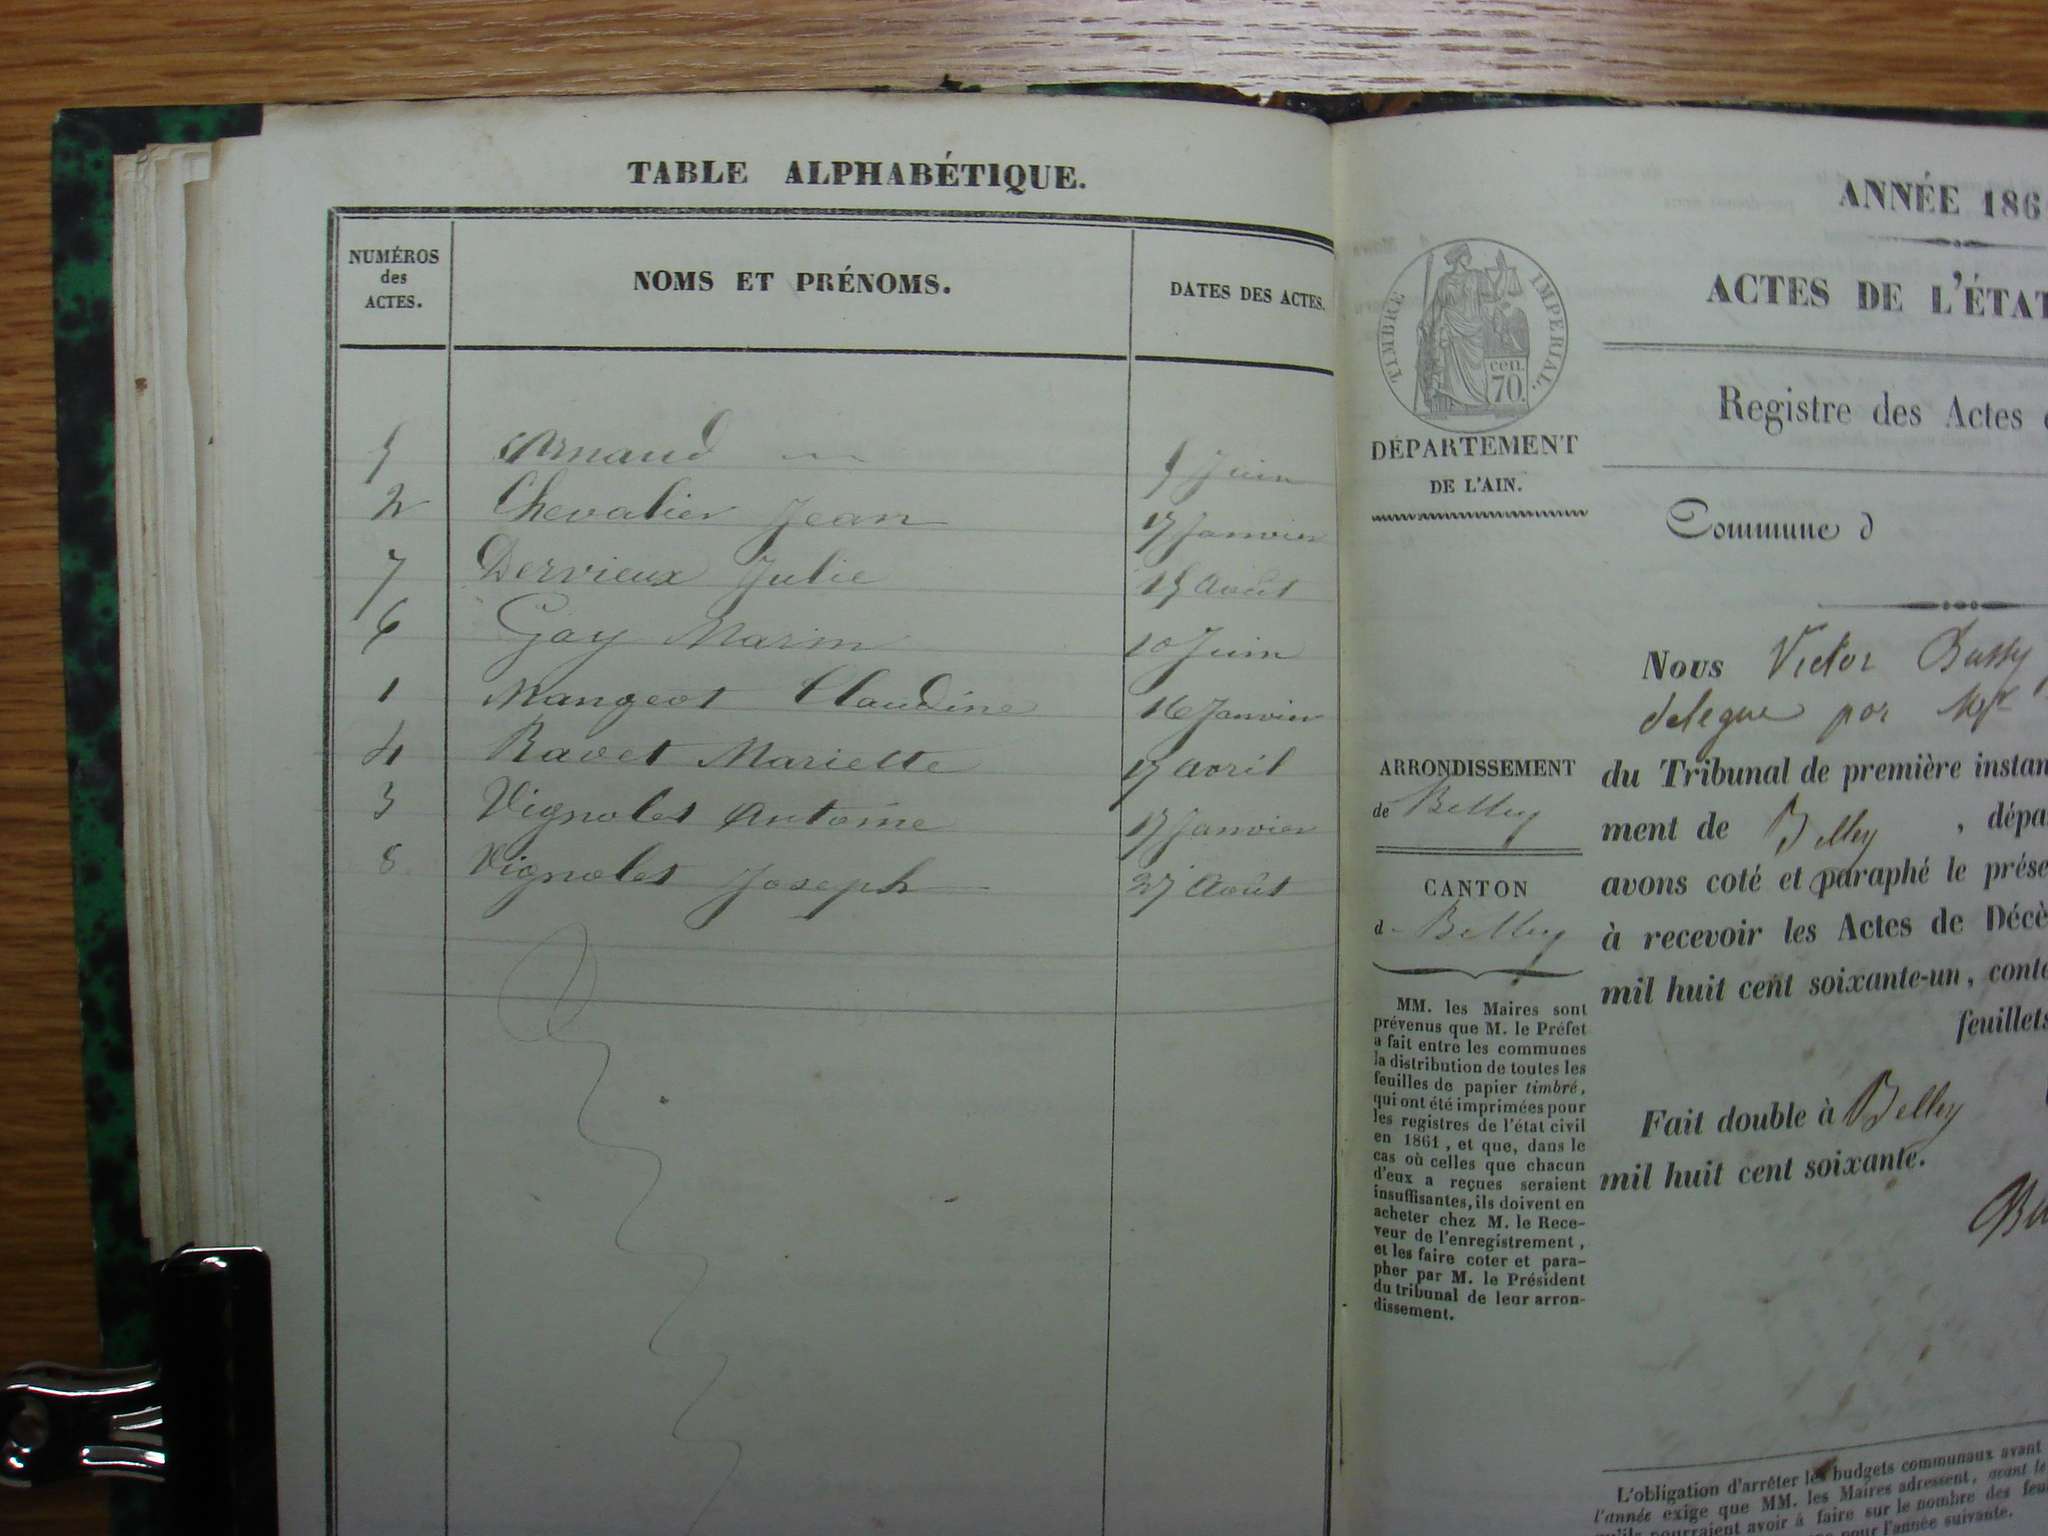 TABLE ALPHABÉTIQUE.
NUMÉROS des ACTES. NOMS ET PRÉNOMS. DATES DES ACTES.
5 Arnaud 5 Juin
2 Chevalier Jean 17 Janvier
7 Dervieux Julie 15 Août
6 Gay Marin 10 Juin
1 Mangeot Claudine 16 Janvier
4 Ravet Mariette 17 avril
3 Vignolet Antoine 17 Janvier
8 Vignolet Joseph 27 Août
ANNÉE 186
ACTES DE L'ÉTAT
TIMBRE IMPERIAL.
cen. 70.
DÉPARTEMENT
DE L'AIN.
Registre des Actes
Commune d
Nous Victor
delegue par
ARRONDISSEMENT
de Belley
CANTON
d Belley
du Tribunal de première instan
ment de Belley, dépa
avons coté et paraphé le prése
à recevoir les Actes de Décè
mil huit cent soixante-un, conte
feuillets
Fait double à Belley
mil huit cent soixante.
MM. les Maires sont
prévenus que M. le Préfet
a fait entre les communes
la distribution de toutes les
feuilles de papier timbré,
qui ont été imprimées pour
les registres de l'état civil
en 1861, et que, dans le
cas où celles que chacun
d'eux a reçues seraient
insuffisantes, ils doivent en
acheter chez M. le Rece-
veur de l'enregistrement,
et les faire coter et para-
pher par M. le Président
du tribunal de leur arron-
dissement.
L'obligation d'arrêter les budgets communaux avant
l'année exige que MM. les Maires adressent, avant le
qu'ils pourraient avoir à faire sur le nombre des feu
pour l'année suivante.